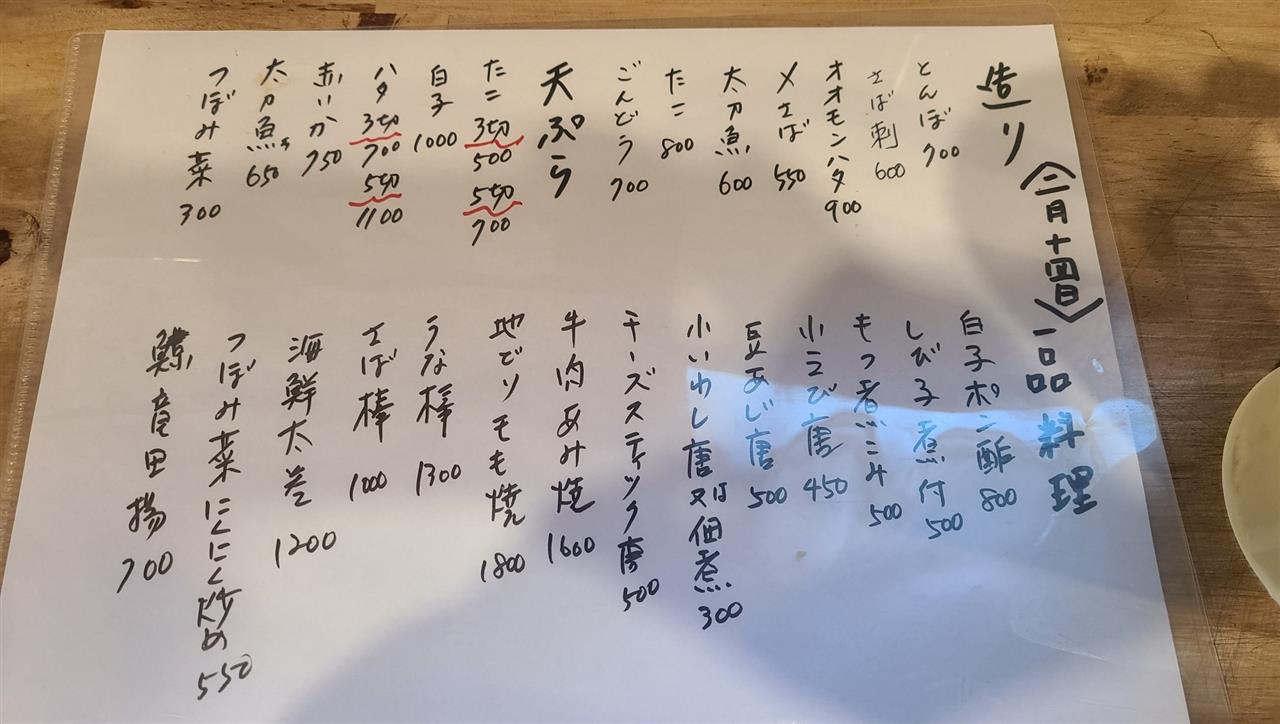 造り
〈二月十四日〉
とんぼ 700
さば刺 600
オオモンハタ 900
〆さば 550
太刀魚 600
たこ 800
ごんどう 700
天ぷら
たこ 3切 500 5切 700
白子 1000
ハタ 3切 700 5切 1100
赤いか 750
太刀魚 650
つぼみ菜 300
一品料理
白子ポン酢 800
しび子煮付 500
もつ煮こみ 500
小えび唐 450
豆あじ唐 500
小いわし唐又は佃煮 300
チーズスティック唐 500
牛肉あみ焼 1600
地どりモモ焼 1800
うな棒 1300
さば棒 1000
海鮮太巻 1200
つぼみ菜にんにく炒め 550
鯨竜田揚 700